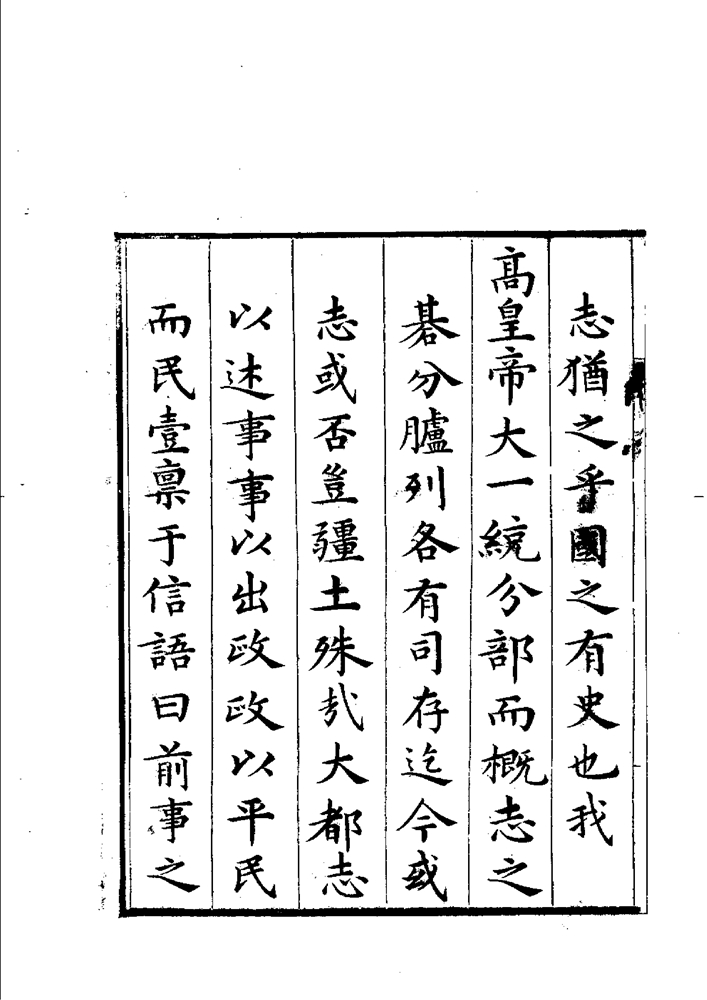 志猶之乎國之有史也我
髙皇帝大一統分部而概志之
碁分臚列各有司存迄今或
志或否豈疆土殊哉大都志
以述事事以出政政以平民
而民壹禀于信語曰前事之